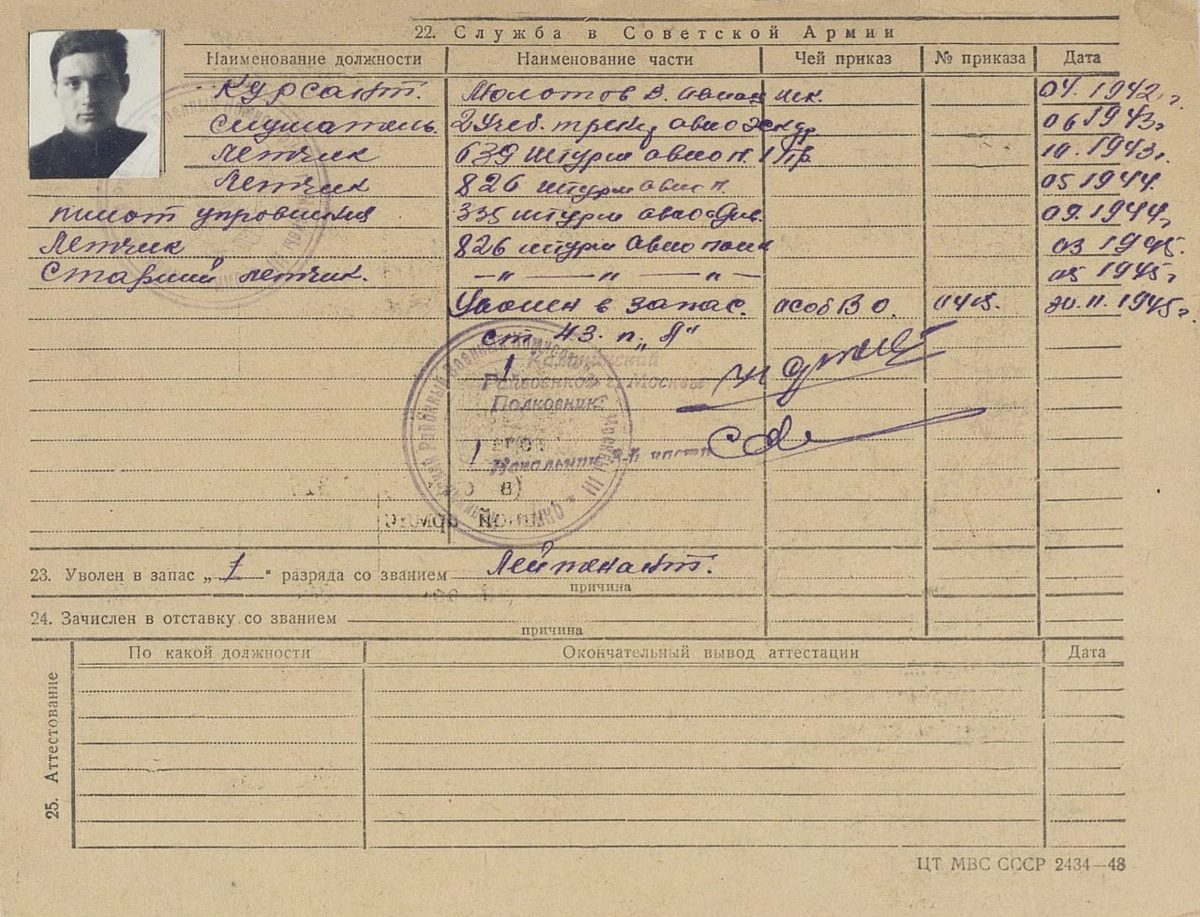 22. Служба в Советской Армии
Наименование должности Наименование части Чей приказ № приказа Дата
Курсант. Молотов В. авиац шк. 04.1942 г.
Слушатель. 2 Учеб. трениц авиоэскдр 06 1943 г
летчик 639 штурм авио п. 1 Пр. 10.1943 г.
летчик 826 штурм авио п. 05 1944.
пилот упровления 335 штурм авио Див. 09.1944 г
Летчик 826 штурм авио полк 03 1945.
Старший летчик. —„— —„— —„— 05 1945 г
Уволен в запас. особ ВО. 0405. 20.11.1945 г.
ст 43. п „А"
Райвоенком г. Москвы
Полковник
Начальник 3-й части
23. Уволен в запас „ 1 " разряда со званием Лейтенант.
причина
24. Зачислен в отставку со званием
причина
25. Аттестование
По какой должности Окончательный вывод аттестации Дата
ЦТ МВС СССР 2434—48